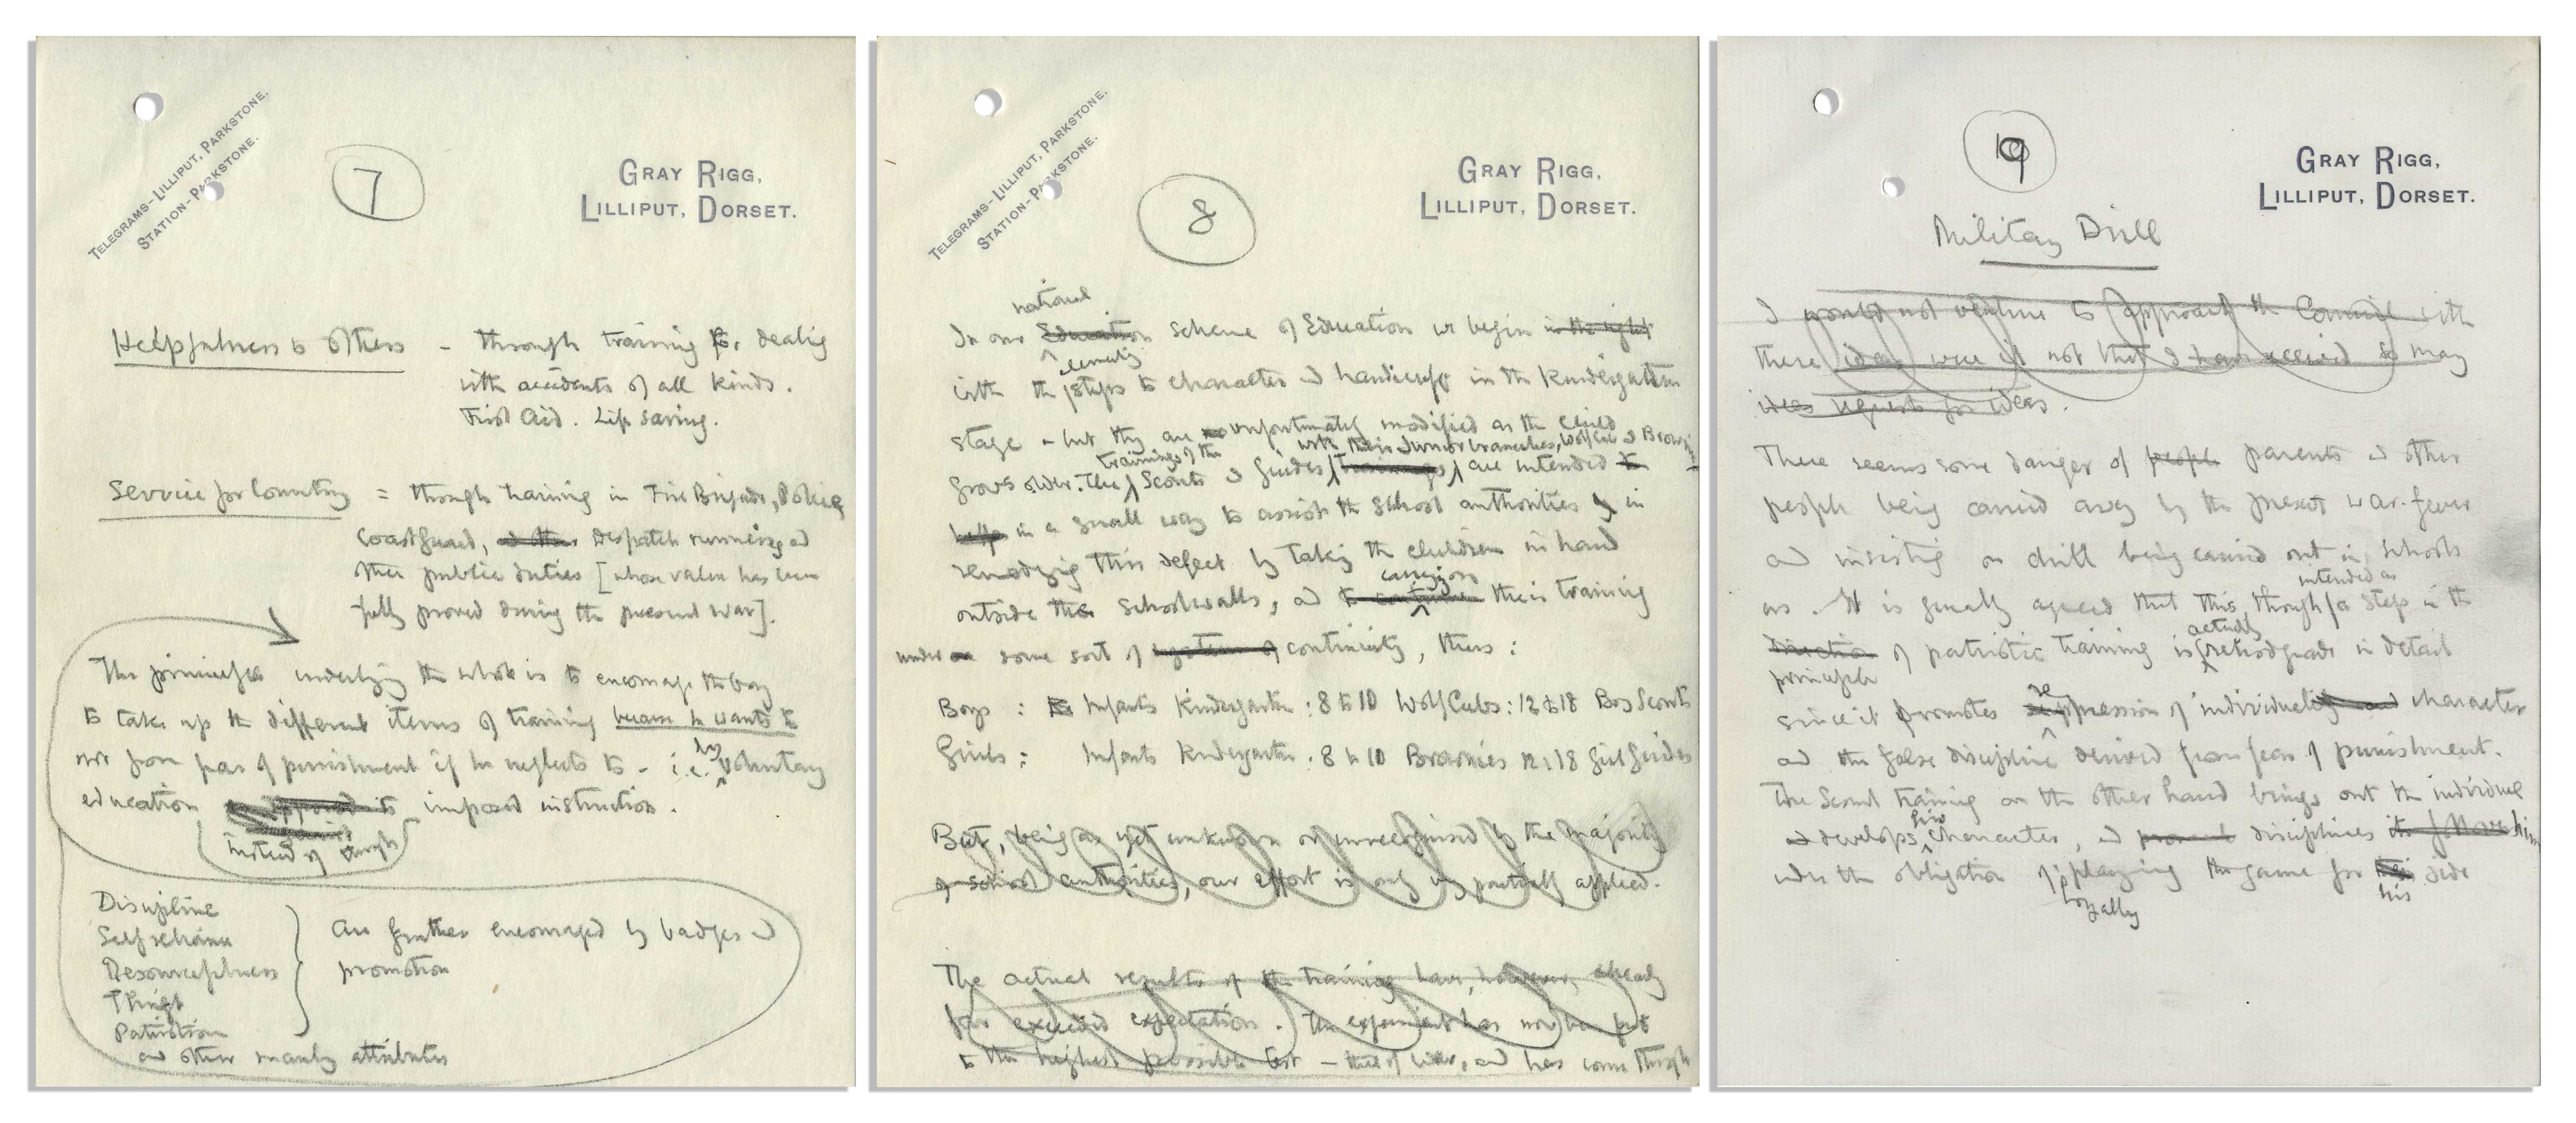 TELEGRAMS-LILLIPUT, PARKSTONE.
STATION-PARKSTONE.
7
GRAY RIGG,
LILLIPUT, DORSET.
Helpfulness to others - through training for dealing
with accidents of all kinds.
First Aid. Life saving.
Service for Country = through training in Fire Brigade, Police
Coastguard, and other Despatch running and
other public duties [whose value has been
fully proved during the present war].
The principle underlying the whole is to encourage the boy
to take up the different items of training because he wants to
not from fear of punishment if he neglects to - i.e. by voluntary
education imposed instruction.
instead of through
Discipline
Self reliance
Resourcefulness
Thrift
Patriotism
and other manly attributes
Are further encouraged by badges and
promotion
TELEGRAMS-LILLIPUT, PARKSTONE.
STATION-PARKSTONE.
8
GRAY RIGG,
LILLIPUT, DORSET.
national
In our Education scheme of Education we begin in the right
with the steps to character and handicraft in the Kindergarten
stage - but they are unfortunately modified as the child
trainings of the with their Junior branches, Wolf Cubs and Brownies
grows older. The Scouts and Guides (trainings) are intended to
help in a small way to assist the school authorities in
remedying this defect by taking the children in hand
carrying on
outside the schoolwalls, and to continue their training
under some sort of system of continuity, thus:
Boys: Infants Kindergarten: 8 to 10 Wolf Cubs: 12 to 18 Boy Scouts
Girls: Infants Kindergarten: 8 to 10 Brownies 12:18 Girl Guides
But, being as yet unknown or unrecognised by the majority
of school authorities, our effort is only partially applied.
The actual results of the training have, however, already
far exceeded expectation. The experiment has now been put
to the highest possible test - that of war, and has come through
9
GRAY RIGG,
LILLIPUT, DORSET.
Military Drill
I would not venture to approach the Council with
these ideas were it not that I have received so many
ideas requests for ideas.
There seems some danger of people parents and other
people being carried away by the present war-fever
and insisting on drill being carried out in schools
intended as
as. It is generally agreed that this, though a step in the
actually
direction of patriotic training is retrograde in detail
principle
re
since it promotes suppression of individuality and character
and the false discipline derived from fear of punishment.
The Scout training on the other hand brings out the individual
his
and develops character, and disciplines him
under the obligation of playing the game for his side
loyally
his